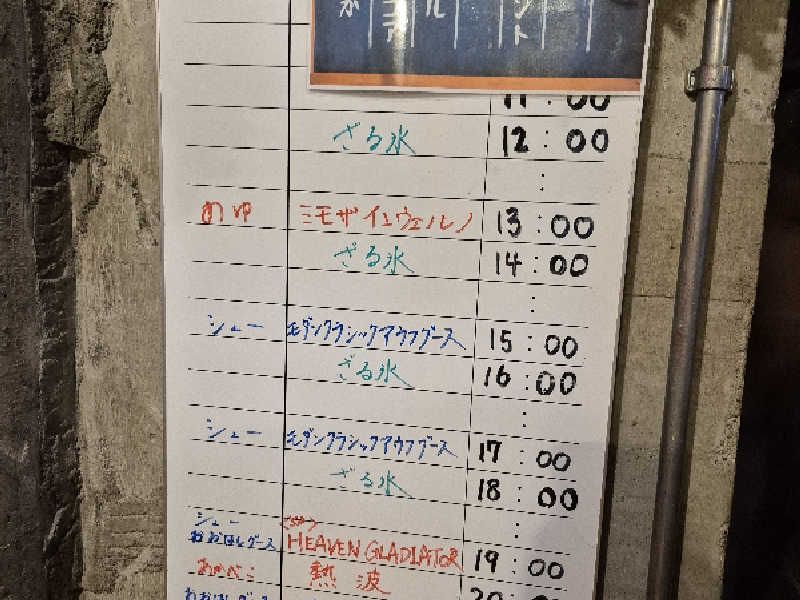 11:00
ざる氷 12:00
:
めゆ ミモザインヴェルノ 13:00
ざる氷 14:00
:
シュー モダンクラシックアウフグース 15:00
ざる氷 16:00
:
シュー モダンクラシックアウフグース 17:00
ざる氷 18:00
:
シュー
HEAVEN GLADIATOR 19:00
熱波